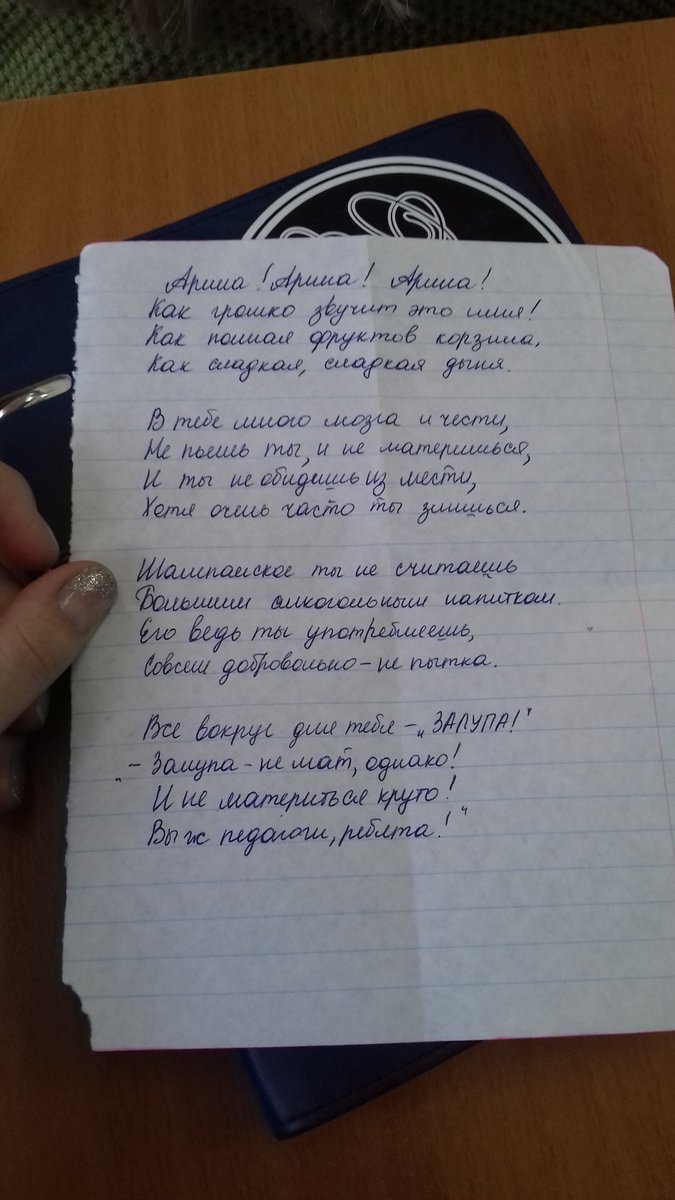 Арина! Арина! Арина!
Как громко звучит это имя!
Как полная фруктов корзина,
Как сладкая, сладкая дыня.
В тебе много мозга и чести,
Не пьешь ты, и не материшься,
И ты не обидишь из мести,
Хотя очень часто ты злишься.
Шампанское ты не считаешь
Большим алкогольным напитком.
Его ведь ты употребляешь,
Совсем добровольно - не пытка.
Все вокруг для тебя - „ЗАЛУПА!"
„- Залупа - не мат, однако!
И не материться круто!
Вы ж педагоги, ребята!"